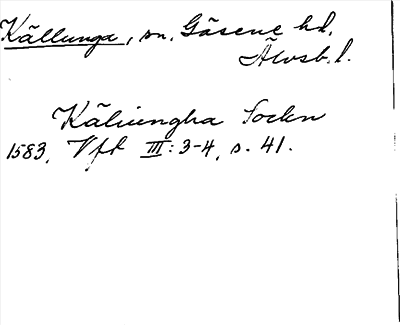 Källunga, sn. Gäsene hd.
Älvsb. l.
Käliungha Sockn
1583, Vft III: 3-4, s. 41.